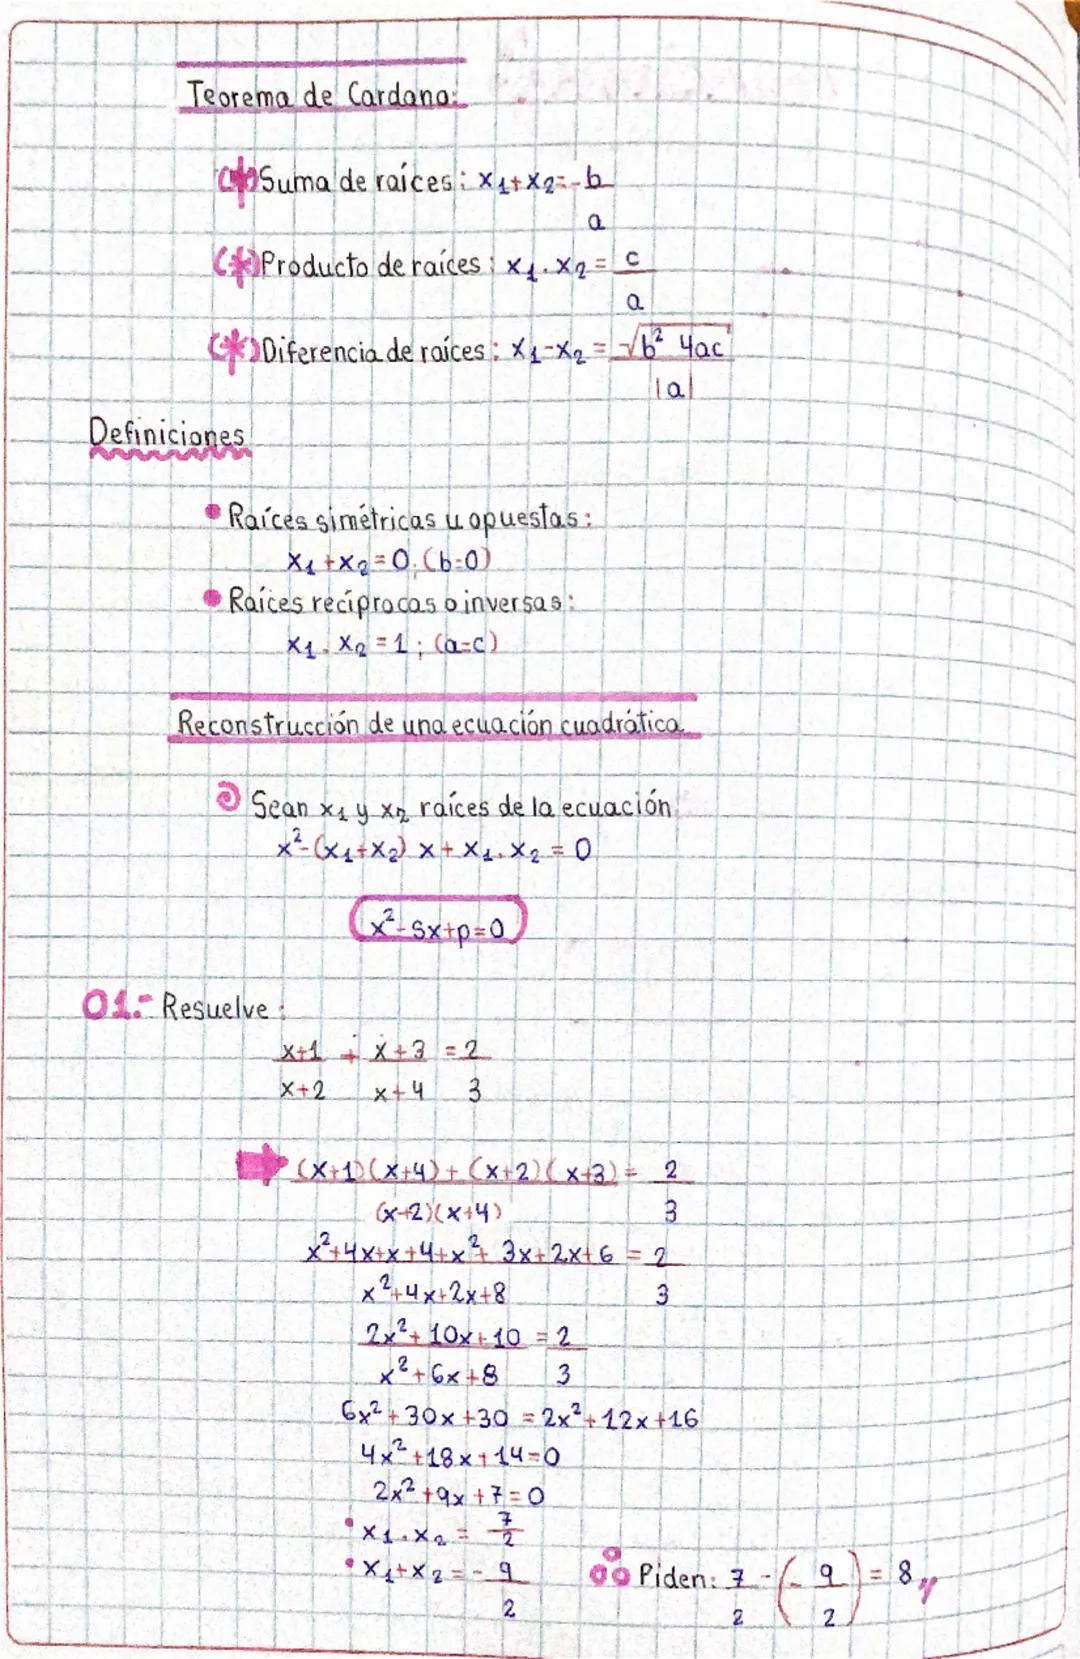 Teorema de Cardano:
(*) Suma de raíces: x₁+x₂=-b/a
(*) Producto de raíces: x₁.x₂ = c/a
(*) Diferencia de raíces: x₁-x₂ = √b² 4ac/|a|
Definiciones
• Raíces simétricas u opuestas:
x₁+x₂=0;(b=0)
• Raíces recíprocas o inversas:
x₁.x₂=1; (a=c)
Reconstrucción de una ecuación cuadrática
Sean x₁ y x₂ raíces de la ecuación
x²-(x₁+x₂) x+x₁.x₂ = 0
x²-Sx+p=0
01.- Resuelve:
x+1/x+2 + x+3/x+4 = 2/3
(x+1)(x+4)+(x+2)(x+3)/(x+2)(x+4) = 2/3
x²+4x+x+4+x²+3x+2x+6/x²+4x+2x+8 = 2/3
2x²+10x+10/x²+6x+8 = 2/3
6x²+30x+30 = 2x²+12x+16
4x²+18x+14=0
2x²+9x+7=0
• x₁.x₂ = 7/2
• x₁+x₂ = -9/2
Piden: 7/2 -(-9/2) = 8//